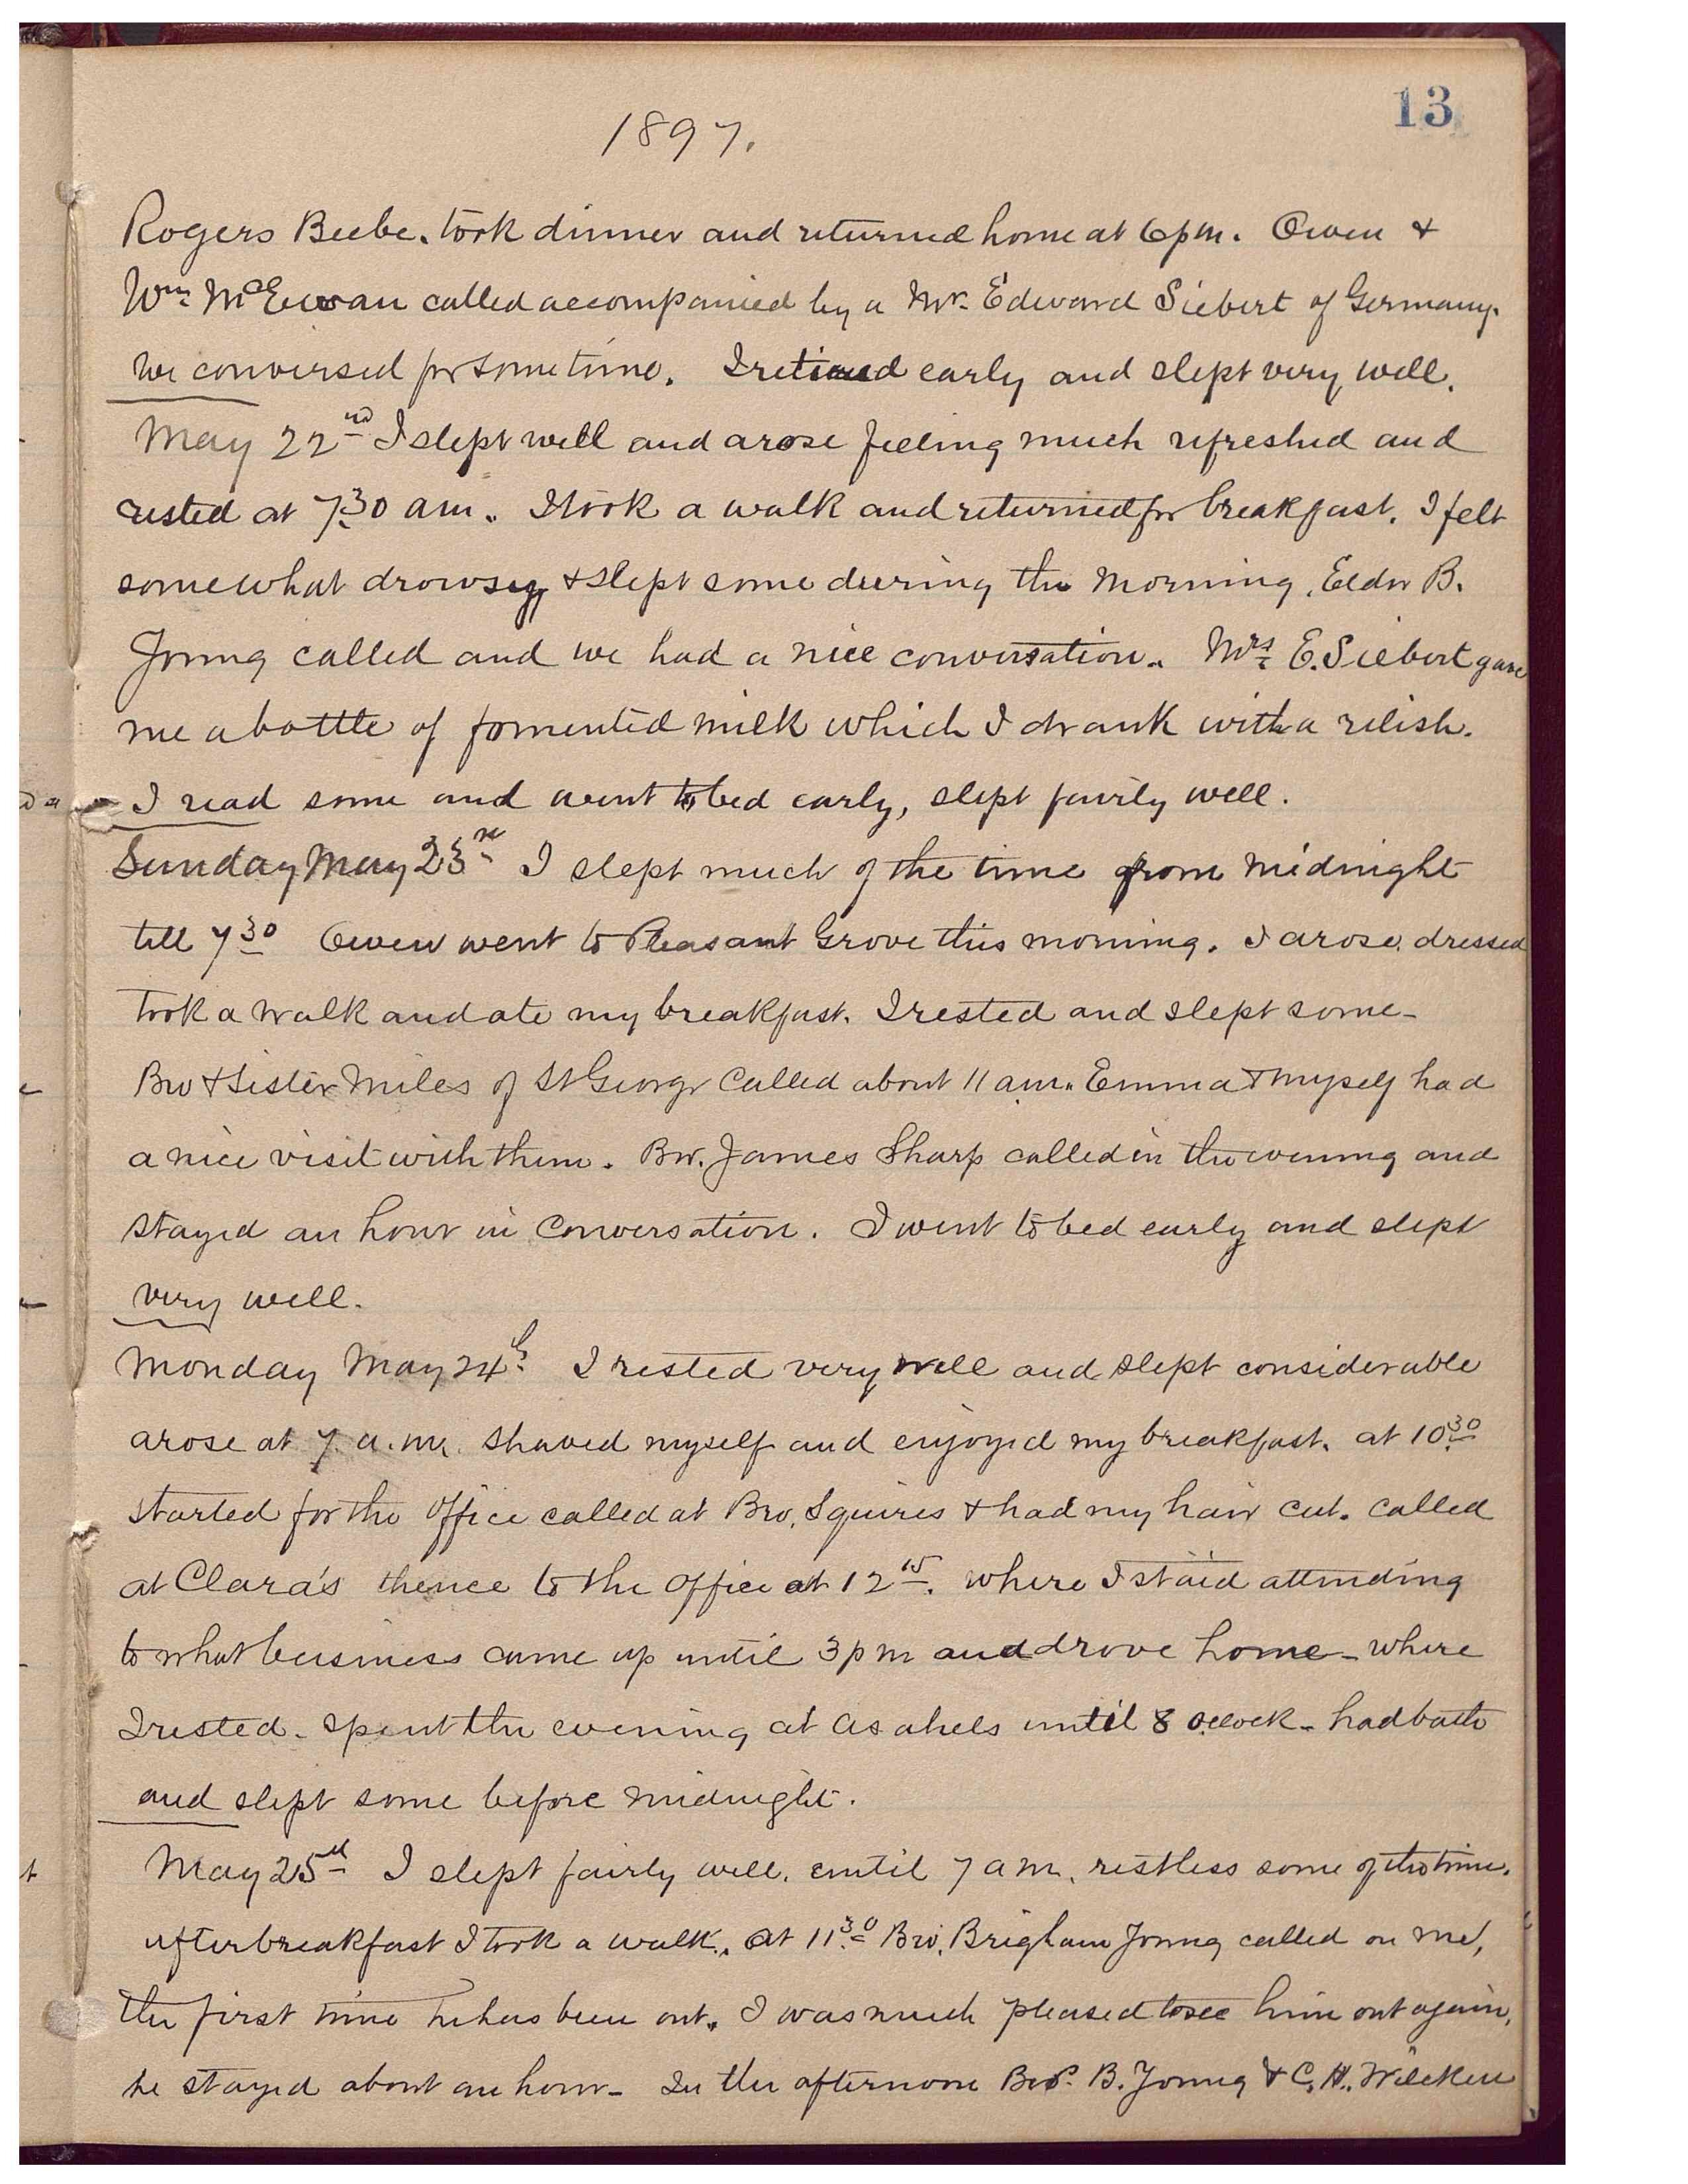 13
1897.
Rogers Beebe. took dinner and returned home at 6 pm. Owen &
Wm McEwan called accompanied by a Mr. Edward Siebert of Germany.
we conversed for some time. I retired early and slept very well.
May 22nd I slept well and arose feeling much refreshed and
rested at 7 30 am. I took a walk and returned for breakfast. I felt
somewhat drowsy & slept some during the morning. Elder B.
Young called and we had a nice conversation. Mrs E. Siebert gave
me a bottle of fomented milk which I drank with a relish.
I read some and went to bed early, slept fairly well.
Sunday May 23rd I slept much of the time from midnight
till 7 30 Owen went to Pleasant Grove this morning. I arose, dressed
took a walk and ate my breakfast. I rested and slept some-
Bro & Sister Miles of St George Called about 11 am. Emma & myself had
a nice visit with them. Bro. James Sharp called in the evening and
stayed an hour in Conversation. I went to bed early and slept
very well.
Monday May 24th I rested very well and slept considerable
arose at 7. a.m. shaved myself and enjoyed my breakfast. at 10 30
started for the office called at Bro. Squires & had my hair cut. called
at Clara's thence to the office at 12 15. where I staid attending
to what business came up until 3 pm and drove home- where
I rested. spent the evening at Asahels until 8 oclock- had bath
and slept some before midnight.
May 25th I slept fairly well. until 7 am. restless some of the time.
after breakfast I took a walk. At 11 30 Bro. Brigham Young called on me,
the first time he has been out. I was much pleased to see him out again,
he stayed about an hour- In the afternoon Bros. B. Young & C. H. Wilcken